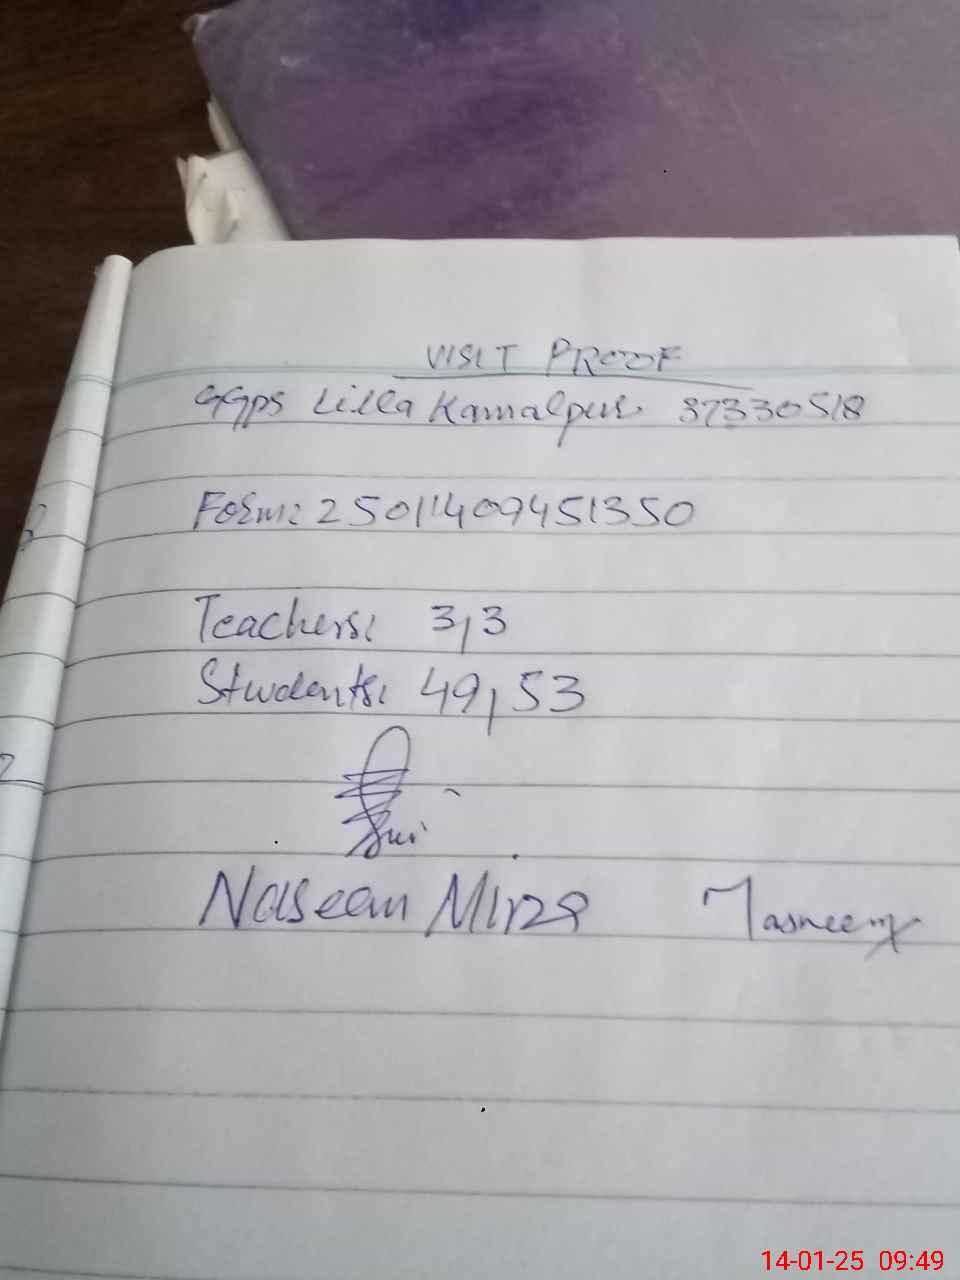 VISIT PROOF
GGPS Lilla Kamalpur 37330518
Form: 25011409451350
Teachers: 3,3
Students: 49,53
Naseem Mirza Tasneem
14-01-25 09:49